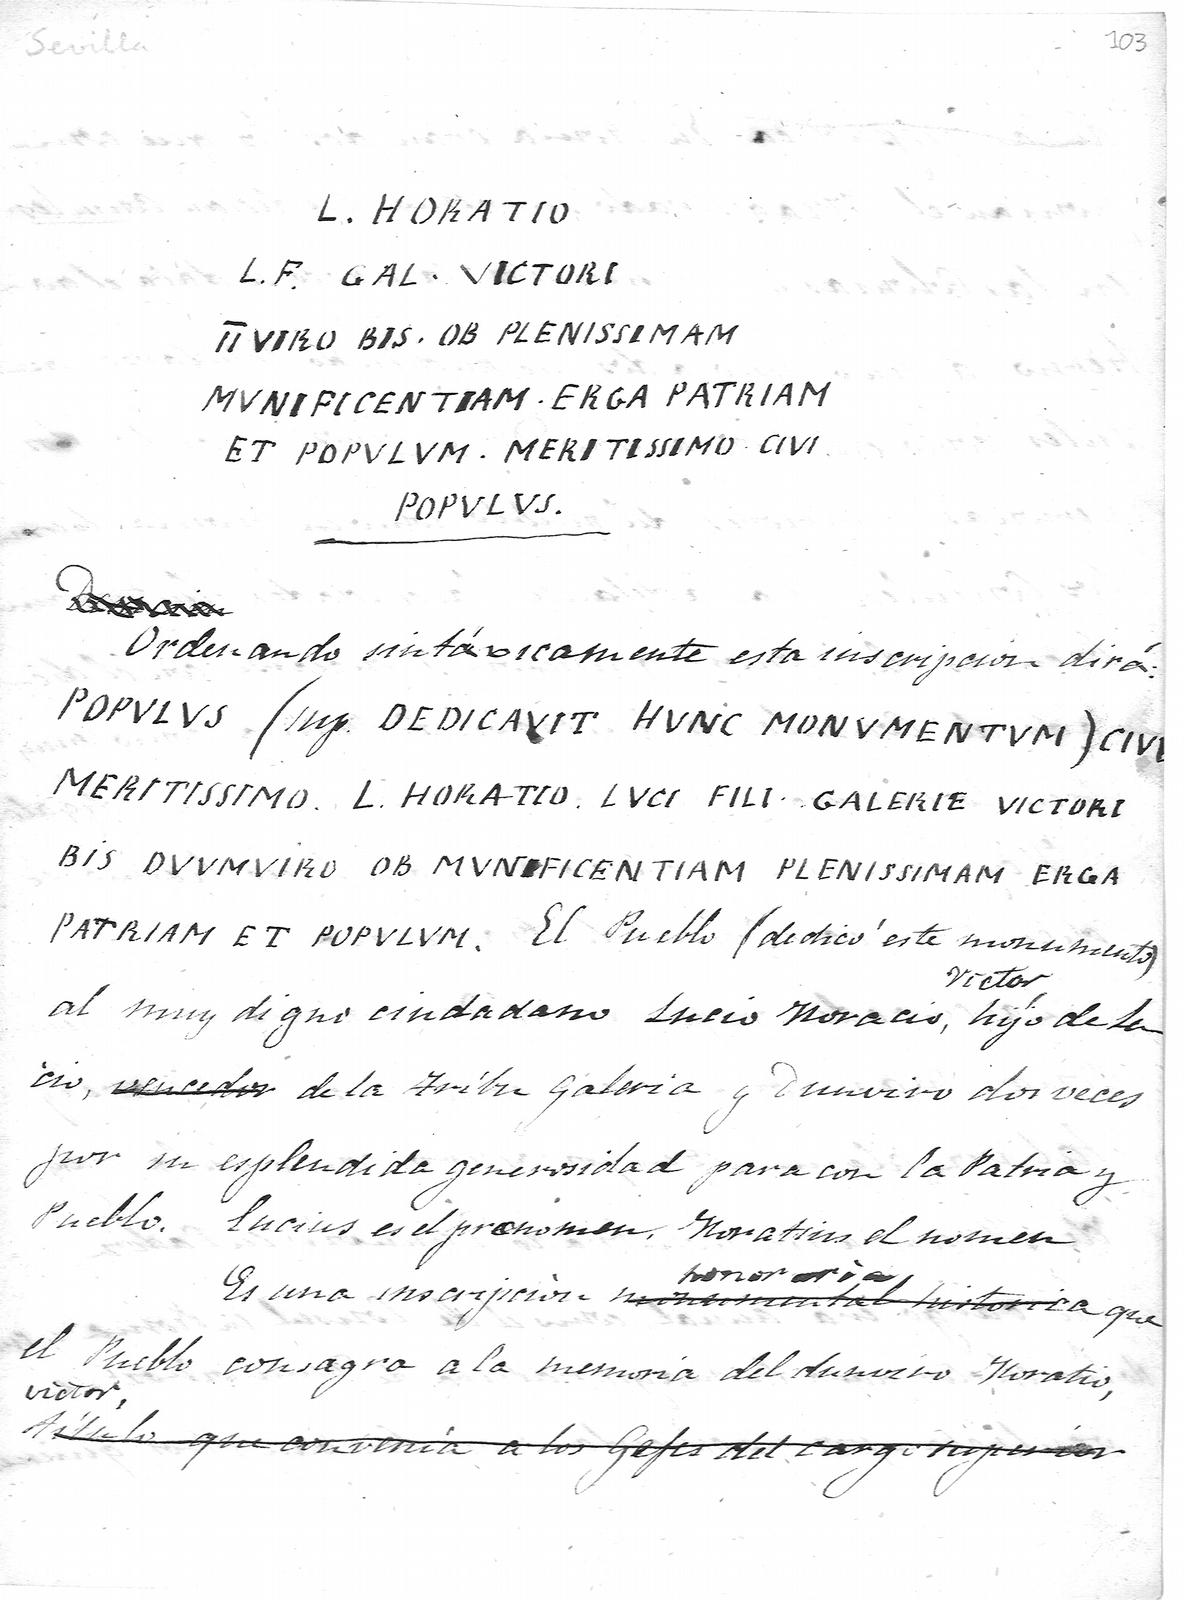 Sevilla
103
L. HORATIO
L.F. GAL. VICTORI
IIVIRO BIS. OB PLENISSIMAM
MVNIFICENTIAM. ERGA PATRIAM
ET POPVLVM. MERITISSIMO. CIVI
POPVLVS.
Ordenando sintáxicamente esta inscripcion dirá:
POPVLVS (sup. DEDICAVIT HVNC MONVMENTVM) CIVI
MERITISSIMO. L. HORATIO. LVCI FILI. GALERIE VICTORI
BIS DVVMVIRO OB MVNIFICENTIAM PLENISSIMAM ERGA
PATRIAM ET POPVLVM. El Pueblo (dedicó este monumento)
Victor
al muy digno ciudadano Lucio Horacio, hijo de Lu
cio, vencedor de la Tribu Galeria y Dunviro dos veces
por su esplendida generosidad para con la Patria y
Pueblo. Lucius es el prenomen. Horatius el nomen
honoraria
Es una inscripción monumental historica que
el Pueblo consagra a la memoria del dunviro Horatio,
victor,
título que convenía a los Gefes del cargo superior